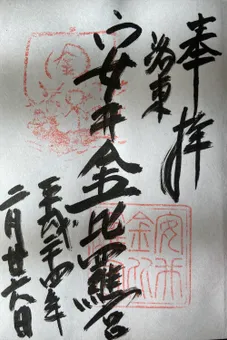 奉拝
洛東
安井金比羅宮
平成二十四年
二月廿六日
金
安井
金刀